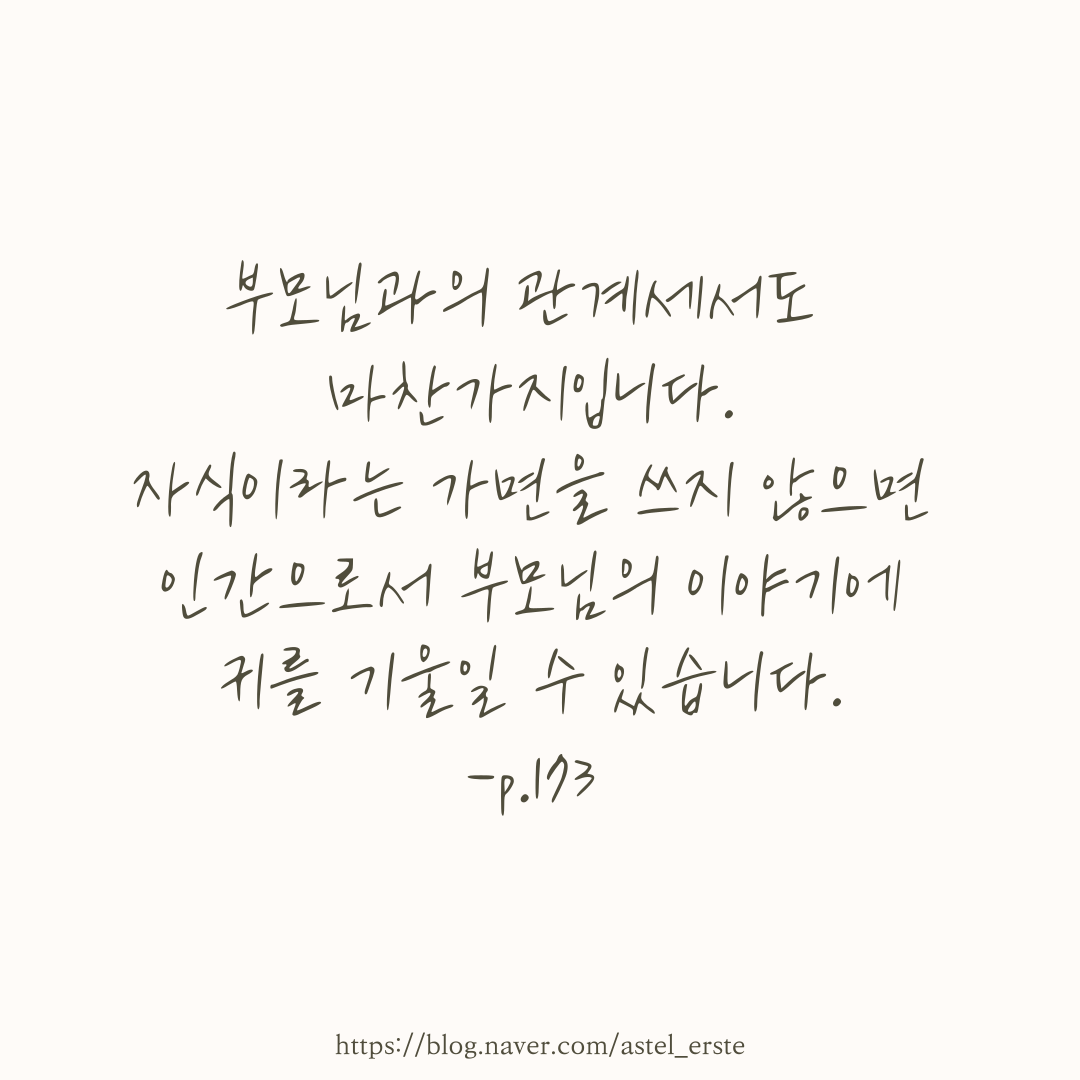 부모님과의 관계세서도
마찬가지입니다.
자식이라는 가면을 쓰지 않으면
인간으로서 부모님의 이야기에
귀를 기울일 수 있습니다.
-p.173
https://blog.naver.com/astel_erste